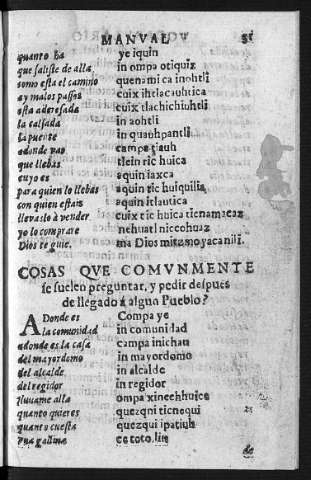 MANVAL 31
quanto ha ye iquin
que saliste de alla in ompa otiquiz
como esta el camino quenami ca in ohtli
ay malos passos cuix ihtlacauhtica
esta aderesada cuix tlachichiuhtli
la calsada in aohtli
la puente in quauhpantli
adonde vas campa tiauh
que llebas tlein tic huica
cuyo es aquin iaxca
para quien lo llebas aquin tic huiquilia
con quien estais aquin itlautica
llevaslo à vender cuix tic huica ticnamacaz
yo lo comprare nehuatl niccohuaz
Dios te guie. ma Dios mitzmoyacanili.
COSAS QVE COMVNMENTE
se suelen preguntar, y pedir despues
de llegado à algun Pueblo?
ADonde es Campa ye
la comunidad in comunidad
adonde es la casa campa inichau
del mayordomo in mayordomo
del alcalde in alcalde
del regidor in regidor
llevame alla ompa xinechhuica
quanto quieres quezqui ticnequi
quanto cuesta quezqui ipatiuh
vna gallina ce totolin
de